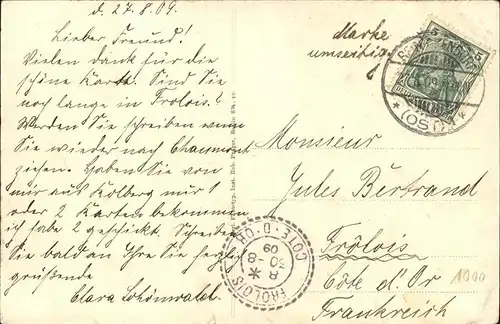 d. 27.8.09.
Lieber Freund!
Vielen dank für die
schöne Karte. Sind Sie
noch lange in Frolois?
Werden Sie schreiben wenn
Sie wieder nach Chaumont
ziehen. Haben Sie von
mir aus Kolberg nur 1
oder 2 Karten bekommen
ich habe 2 geschickt. Schreiben
Sie bald an Ihre Sie herzl.
grüßende
Clara Schönwald.
Marke
umseitig
5 5
(OST)
Monsieur
Jules Bertrand
Frôlois
Côte d'Or
Frankreich
1000
COTE-D'OR
8
30 -8
09
FROLOIS